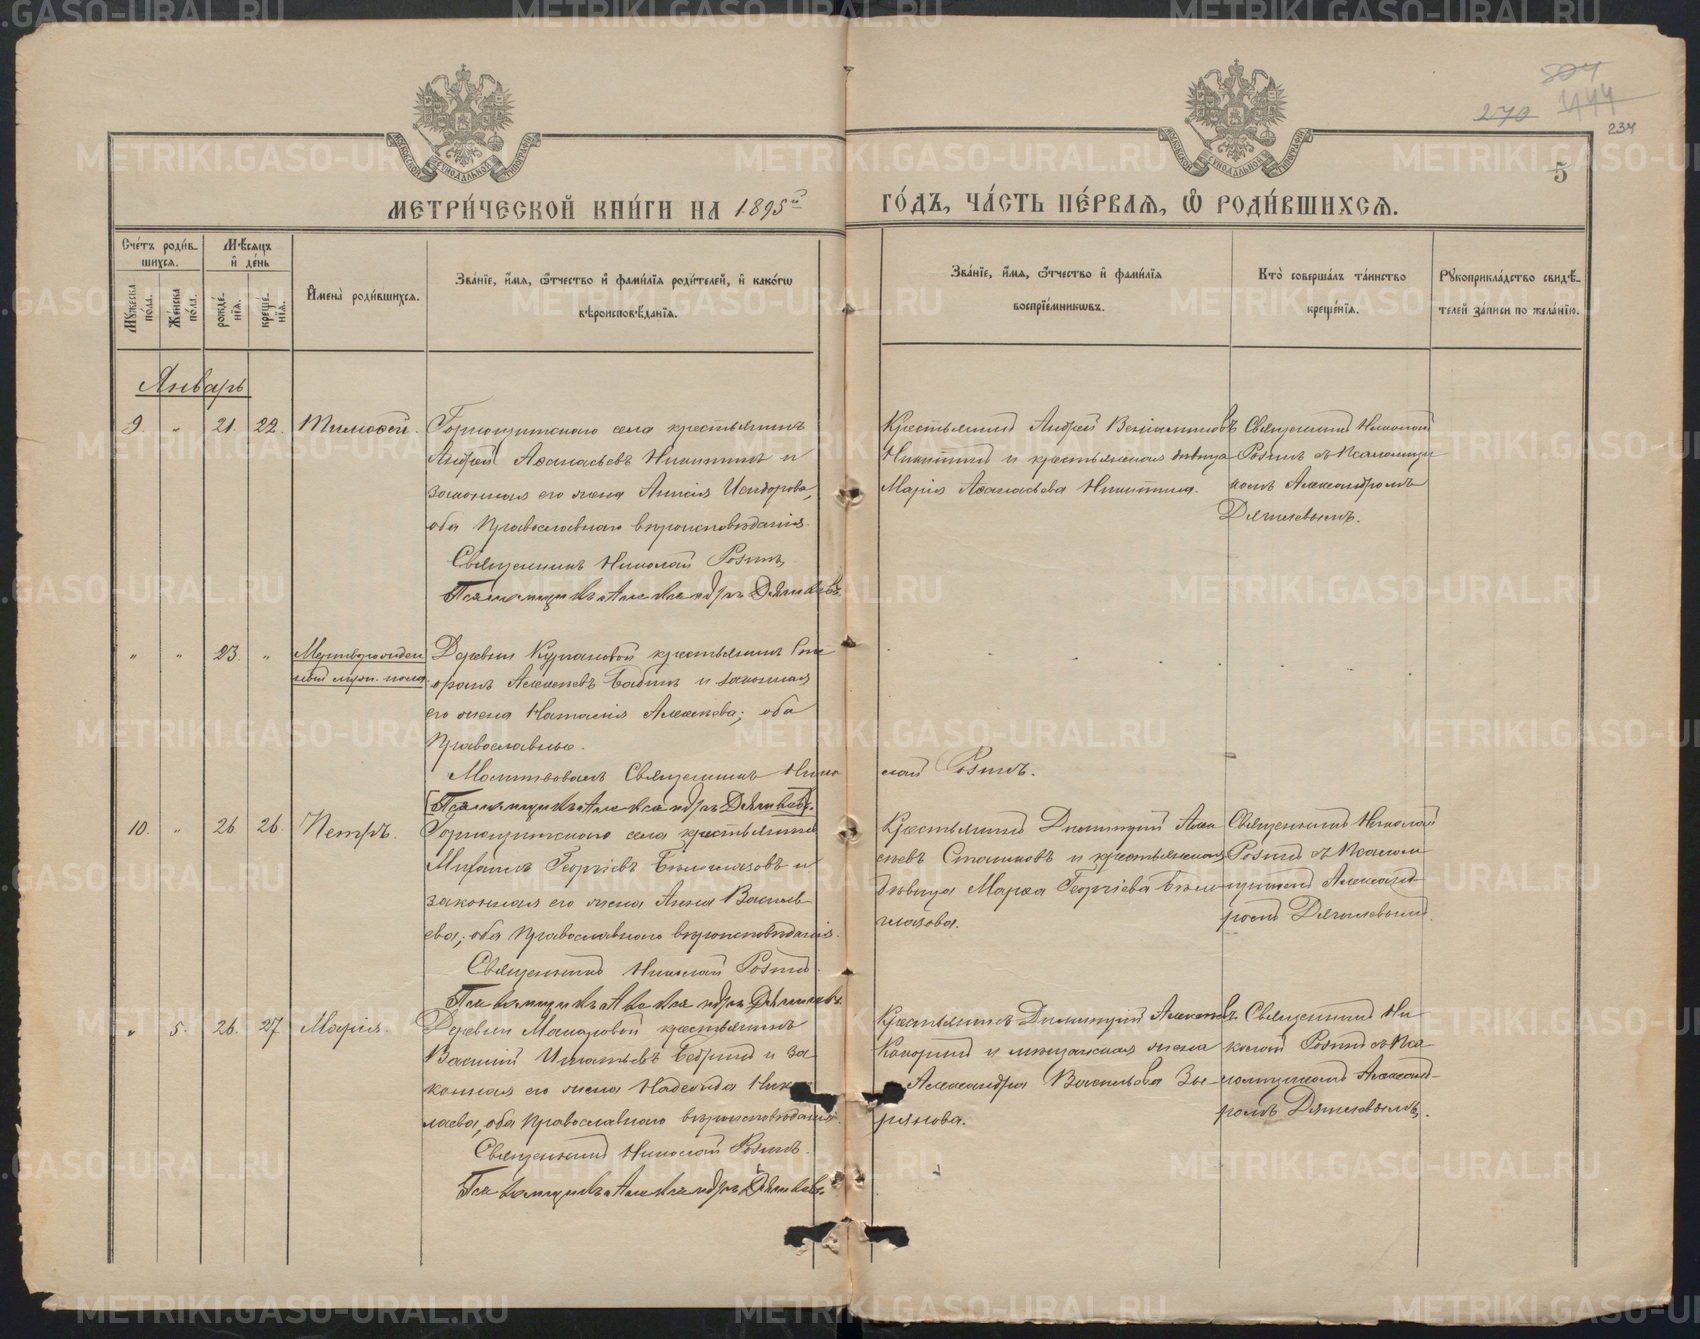 270 804 1444
234
5
МОСКОВСКОЙ СѴНОДАЛЬНОЙ ТИПОГРАФІИ
МОСКОВСКОЙ СѴНОДАЛЬНОЙ ТИПОГРАФІИ
МЕТРИ́ЧЕСКОЙ КНИ́ГИ НА 1895й ГО́ДЪ, ЧА́СТЬ ПЕ́РВАѦ, Ѡ РОДИ́ВШИХСѦ.
Сче́тъ роди́в-
шихся.
Мѣсяцъ
и де́нь
Мꙋжеска по́ла.
Же́нска по́ла.
рожде́-
нїя.
креще́-
нїя.
Имена̀ роди́вшихся.
Зва́нїе, и́мя, ѻ҆́тчество и фами́лїя роди́телей, и како́гѡ
вѣроисповѣ́данїя.
Зва́нїе, и́мя, ѻ҆́тчество и фами́лїя
воспрїе́мниковъ.
Кто̀ соверша́лъ та́инство
креще́нїя.
Рꙋкоприкла́дство свидѣ́-
телей за́писи по жела́нїю.
Январь
9. " 21. 22. Тимоѳей.
села крестьянинъ
Андрей Аѳанасьевъ Никитинъ и
законная его жена Анисія Исидорова,
оба Православнаго вѣроисповѣданія.
Священникъ Николай Розинъ
Псаломщикъ Александръ Дягилевъ
Крестьянинъ Андрей Веніаминовъ
Никитинъ и крестьянская дѣвица
Марія Аѳанасьева Никитина.
Священникъ Николай
Розинъ съ Псаломщи-
комъ Александромъ
Дягилевымъ.
" " 23. " Мертворожден
ный муж. пола.
Деревни крестьянинъ Спи
ридонъ Алексѣевъ Бабинъ и законная
его жена Наталія Алексѣева; оба
Православные.
Молитвовалъ Священникъ Нико
лай Розинъ.
Псаломщикъ Александръ Дягилевъ.
10. " 26 26. Петръ.
села крестьянинъ
Михаилъ Георгіевъ Бѣлоглазовъ и
законная его жена Анна Василь-
ева; оба Православнаго вѣроисповѣданія.
Священникъ Николай Розинъ.
Псаломщикъ Александръ Дягилевъ.
Крестьянинъ Димитрій Алек
сѣевъ и крестьянская
дѣвица Марѳа Георгіева Бѣло-
глазова.
Священникъ Николай
Розинъ съ Псалом-
щикомъ Александ-
ромъ Дягилевымъ.
" 5. 26. 27 Марія.
Деревни Макаровой крестьянинъ
Василій Игнатьевъ и за
конная его жена Надежда Нико
лаева, оба Православнаго вѣроисповѣданія.
Священникъ Николай Розинъ.
Псаломщикъ Александръ Дягилевъ.
Крестьянинъ Димитрій Алексѣевъ
и мѣщанская жена
Александра Васильева Зы-
рянова.
Священникъ Ни
колай Розинъ съ Пса-
ломщикомъ Александ-
ромъ Дягилевымъ.
METRIKI.GASO-URAL.RU